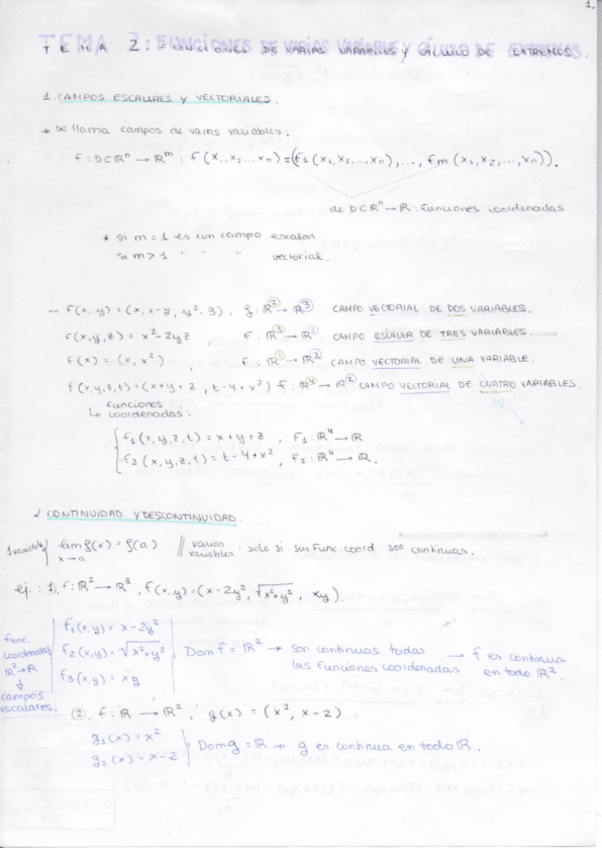 1.
TEMA 2: FUNCIONES DE VARIAS VARIABLES Y CÁLCULO DE EXTREMOS.
1 CAMPOS ESCALARES Y VECTORIALES.
* se llama campos de varias variables.
f: D⊂ℝⁿ → ℝᵐ : f(x₁, x₂ ... xₙ) = (f₁(x₁, x₂, ..., xₙ), ..., fₘ(x₁, x₂, ..., xₙ)).
de D⊂ℝⁿ → ℝ: Funciones coordenadas.
* si m = 1 es un campo escalar
si m > 1 " " " vectorial.
-- f(x, y) = (x, x-y, y²-3), f: ℝ² → ℝ³ CAMPO VECTORIAL DE DOS VARIABLES.
f(x, y, z) = x² - 2yz f: ℝ³ → ℝ¹ CAMPO ESCALAR DE TRES VARIABLES.
f(x) = (x, x²), f: ℝ¹ → ℝ² CAMPO VECTORIAL DE UNA VARIABLE.
f(x, y, z, t) = (x+y+z, t-4+x²) f: ℝ⁴ → ℝ² CAMPO VECTORIAL DE CUATRO VARIABLES.
funciones
↳ coordenadas:
f₁(x, y, z, t) = x+y+z, f₁: ℝ⁴ → ℝ
f₂(x, y, z, t) = t-4+x², f₂: ℝ⁴ → ℝ.
2 CONTINUIDAD Y DESCONTINUIDAD.
1 variable} lim x→a f(x) = f(a) // varias variables: solo si sus Func. coord. son continuas.
ej.: ①. f: ℝ² → ℝ³, f(x, y) = (x - 2y², √x²+y², xy).
func. coordenadas ℝ² → ℝ ↓ campos escalares.
f₁(x, y) = x - 2y²
f₂(x, y) = √x²+y²
f₃(x, y) = xy
Dom f = ℝ² → son continuas todas las funciones coordenadas → f es continua en todo ℝ².
②. f: ℝ → ℝ², g(x) = (x², x-2)
g₁(x) = x²
g₂(x) = x-2
Dom g = ℝ → g es continua en todo ℝ.